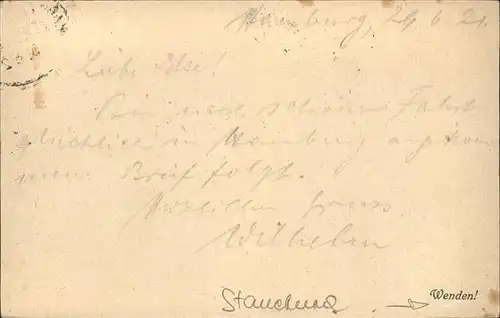 Hamburg, 29.6.21
Liebe Else!
Bin nach schöner Fahrt
glücklich in Hamburg angekom
men. Brief folgt.
Herzlichen Gruss
Wilhelm
Stauchung → Wenden!